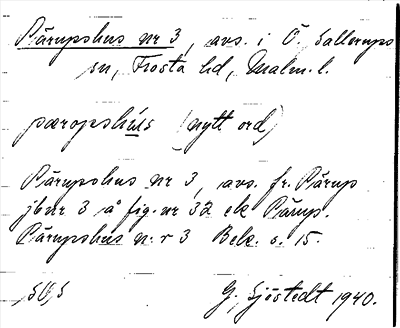 Pärupshus nr 3, avs. i Ö. Sallerups
sn, Frosta hd, Malm. l.
pæropshús (nytt ord)
Pärupshus nr 3, avs. fr. Pärup
jbnr 3 å fig. nr 32 ek Pärup.
Pärupshus n:r 3 Bek. s. 15.
G. Sjöstedt 1940.